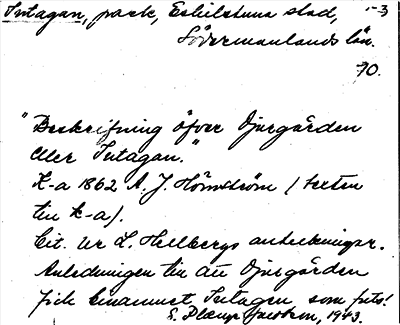 Intagan, park, Eskilstuna stad, 1-3
Södermanlands län.
70.
"Beskrifning öfver Djurgården
eller Intagan."
K-a 1862 A. J. Hörnström (texten
till k-a).
Cit. ur L. Hellbergs anteckningar.
Anledningen till att Djurgården
fick benämnet Intagan, som fots!
E. Jacobson, 1943.